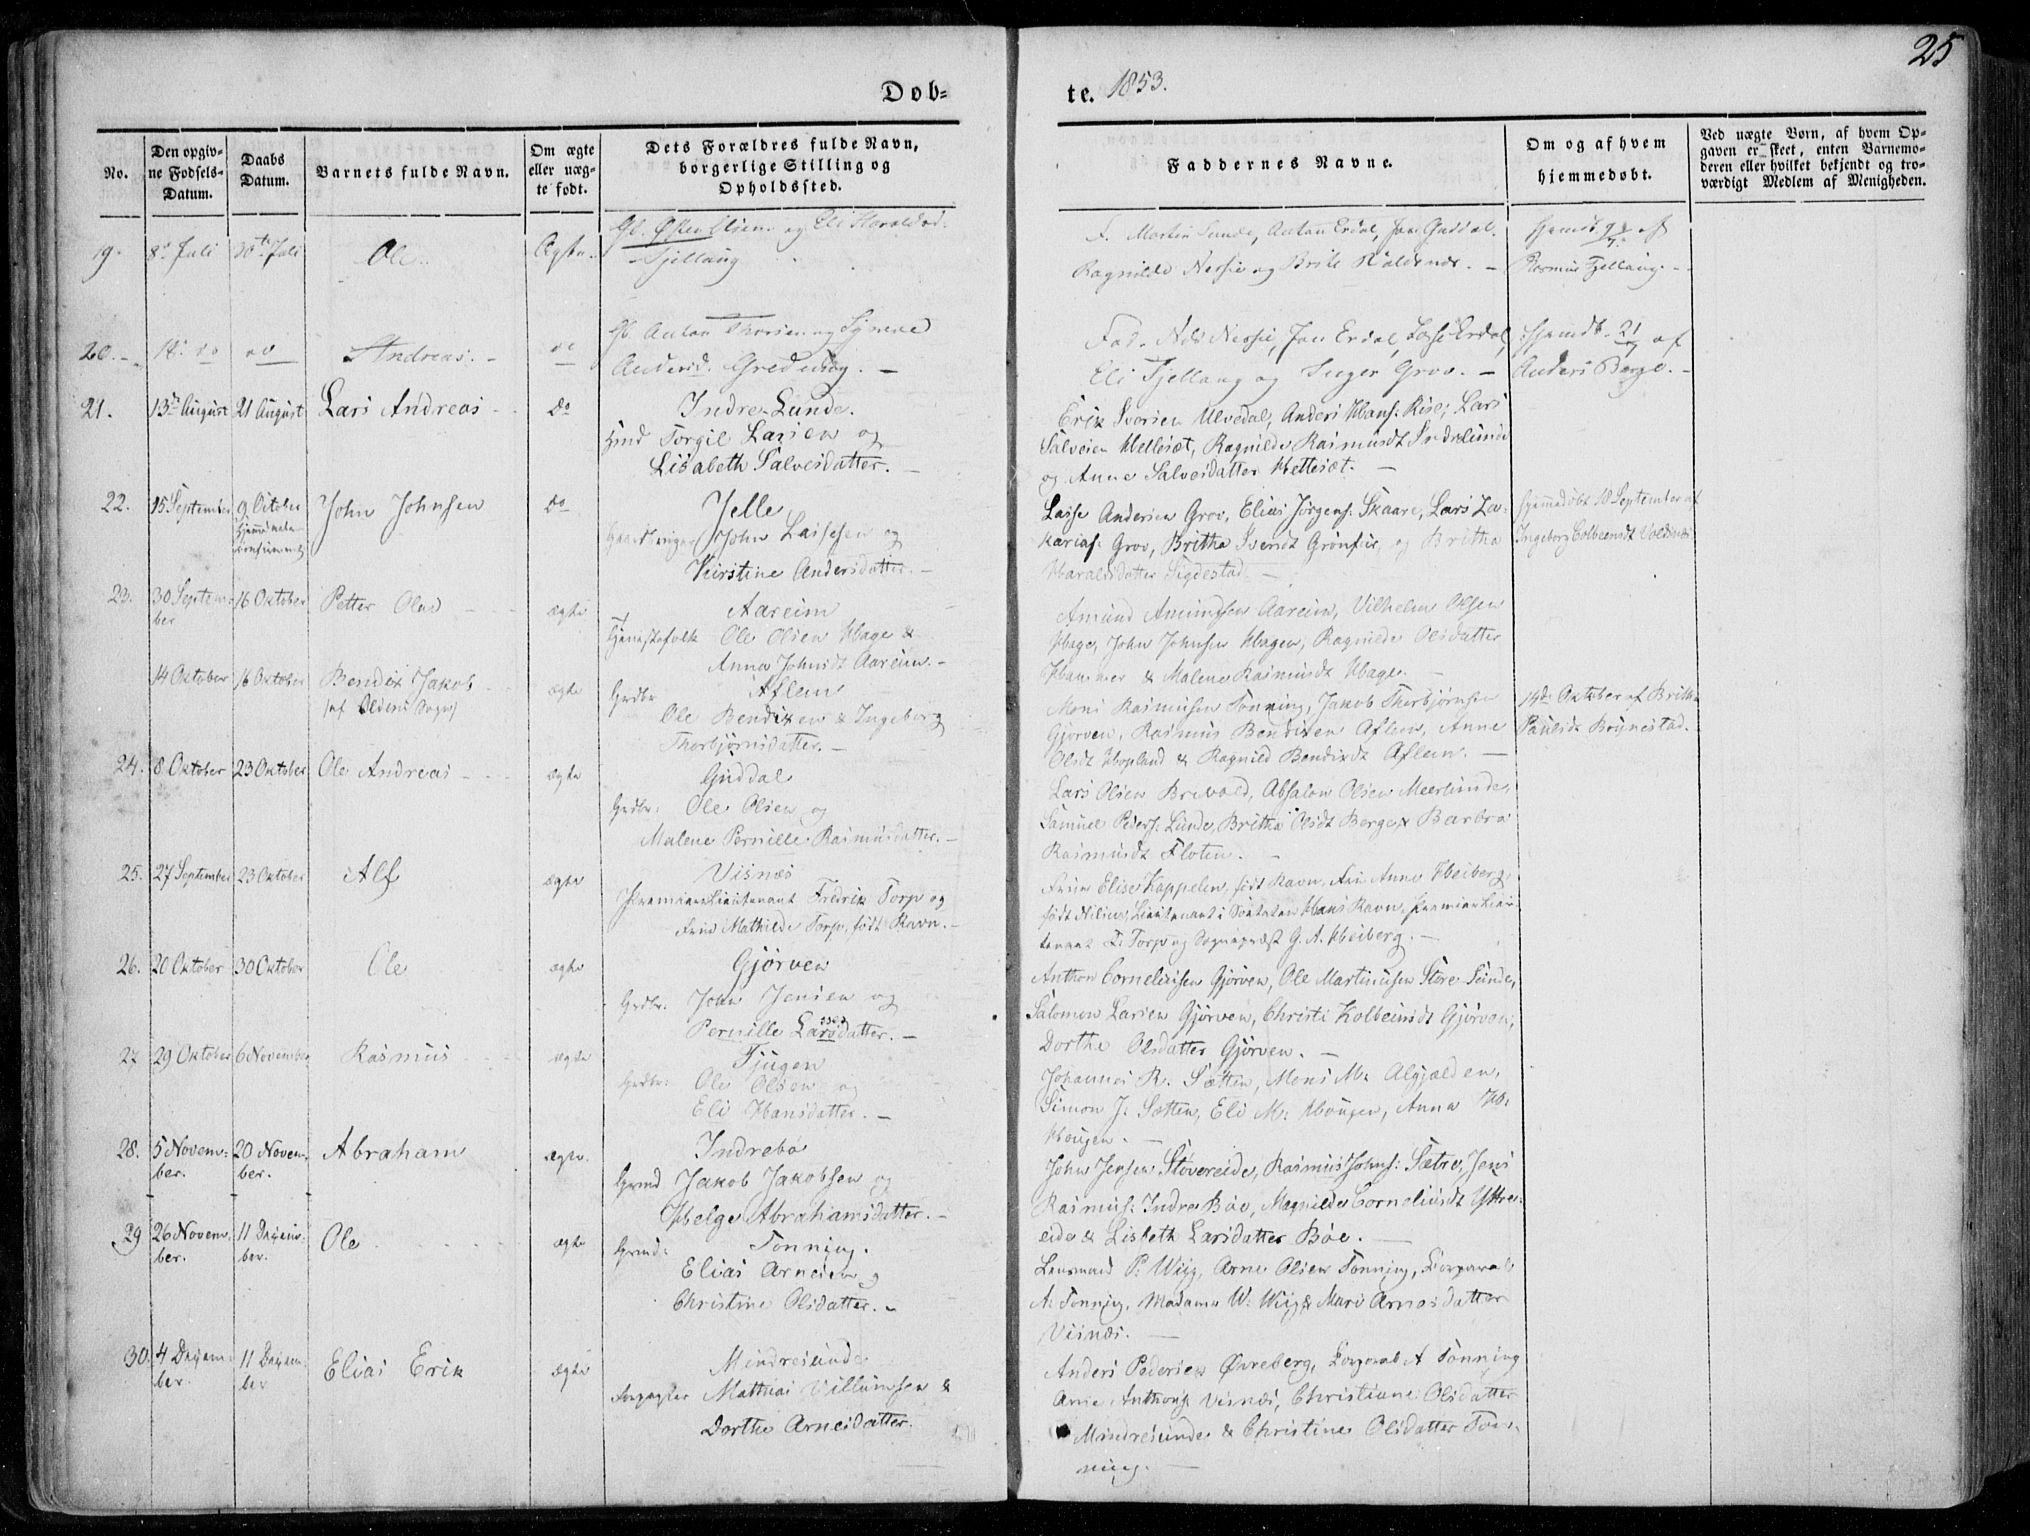 25
Døb-
te. 1853.
No.
Den opgiv-
ne Fødsels-
Datum.
Daabs
Datum.
Barnets fulde Navn.
Om ægte
eller uæg-
te født.
Dets Forældres fulde Navn,
borgerlige Stilling og
Opholdssted.
Faddernes Navne.
Om og af hvem
hjemmedøbt.
Ved uægte Børn, af hvem Op-
gaven er skeet, enten Barnemo-
deren eller hvilket bekjendt og tro-
værdigt Medlem af Menigheden.
19. 8de Juli 30te Juli Ole. Ægte.
Gb. Østen Olsen og Eli Haraldsd.
Fjellaug
F. Martin Sunde, Anton Erdal, Jon Guddal.
Ragnilde Nessie og Brite
Hjemdt af
Rasmus Fjellaug. -
20. - 14. do do Andreas. - do
Gb. Anton Thorsen og Synneve
Andersd. Greduing. -
Fad. Nils Nessie, Jon Erdal, Lasse Erdal,
Eli Fjellaug og Inger Grov. -
Hjemdt. 21/7 af
Anders Berge. -
21. 13de August 21 August Lars Andreas - do
Indre-Sunde.
Hmd Torgil Larsen og
Lisabeth Salvesdatter. -
Erik Iversen Ulvedal, Anders Hans: Rise, Lars
Salvesen Hellesæt, Ragnilde Rasmusdt Indresunde
og Anne Salvesdatter Hellesæt. -
22. 15 September 9 October John Johnsen do
Hjelle
John Lassesen og
Kirstine Andersdatter. -
Lasse Andersen Grov, Elias Jørgens: Skaare, Lars Za-
karias: Grov, Britha Svendt Grønfur, og Britha
Haraldsdatter Sigdestad. -
Hjemmedøbt 18 September af
Ingeborg Colbeensdt Voldnæs.
23. 30 Septem-
ber 16 Oktober Petter Olus - ægte
Aareim
Tjenestefolk Ole Olsen Hage &
Anna Johnsdt Aareim. -
Amund Amundsen Aareim, Vilhelm Olsen
Hage, John Johnsen Hagen, Ragnilde Olsdatter
Hammer & Malene Rasmusdt Hage.
14 Oktober 16 Oktober Bendix Jakob - ægte
(af Oldens Sogn)
Aflem
Grdbr. Ole Bendixen & Ingeborg
Thorbjørnsdatter. -
Mons Rasmusen Tonning, Jakob Thorbjørnsen
Gjørven, Rasmus Bendixen Aflem, Anne
Olsdt Hopland & Ragnild Bendixdt Aflem. -
14de Oktober af Britha
Paulsdt Brynestad.
24. 8 Oktober 23 Oktober Ole Andreas - ægte
Guddal
Grdbr: Ole Olsen og
Malene Pernille Rasmusdatter. -
Lars Olsen Brevold, Absalon Olsen Meerlunde,
Samuel Peders: Sunde, Britha Olsdt Berge & Barbra
Rasmusdt Floten. -
25. 27 September 23 Oktober Alf ægte
Visnæs
Premierlieutenant Fredrik Torp og
Frue Mathilde Torp, født Ravn. -
Frue Elise Kappelen, født Ravn, Fru Anne Heiberg,
født Nilsen, Lieutenant i Hans Ravn, Premierlieu-
tenant F: Torp og Sogneprest G. A. Heiberg. -
26. 20 Oktober 30 Oktober Ole ægte
Gjørven
Grdbr. John Jensen og
Pernille Larsdatter. -
Anthon Corneliusen Gjørven, Ole Martinusen Store Sunde,
Salomon Larsen Gjørven, Christi Kolbeinsdt Gjørven,
Dorthe Olsdatter Gjørven. -
27 29 Oktober 6 November Rasmus ægte
Tjugen
Grdbr: Ole Olsen og
Eli Hansdatter. -
Johannes R. Sætten, Mons M: Algjælden,
Simon J: Sætten, Eli M: Hougen, Anna
Hougen. -
28. 5 Novem-
ber. 20 Novem-
ber. Abraham ægte.
Indrebø
Grmd Jakob Jakobsen og
Helge Abrahamsdatter. -
John Jensen Støvereide, Rasmus Johns: Sætre, Jens
Rasmus: Indre Bøe, Magnilde Corneliusdt Yttre-
eide & Lisbeth Larsdatter Bøe. -
29 26 Novem-
ber. 11 Decem-
ber. Ole ægte
Grmd: Tonning.
Elias Arnesen og
Christine Olsdatter. -
Lensmand P: Wiig, Arne Olsen Tonning, Korporal
A: Tonning, Madame W: Wiig & Mari Arnesdatter
Visnæs. -
30. 4 Decem-
ber. 11 Decem-
ber Elias Erik ægte
Mindresunde
Forpagter Mathias Villumsen &
Dorthe Arnesdatter.
Anders Pedersen Øvreberg, Korporal A Tonning
Arne Anthons: Visnæs, Christiane Olsdatter
Mindresunde & Christine Olsdatter Ton-
ning. -